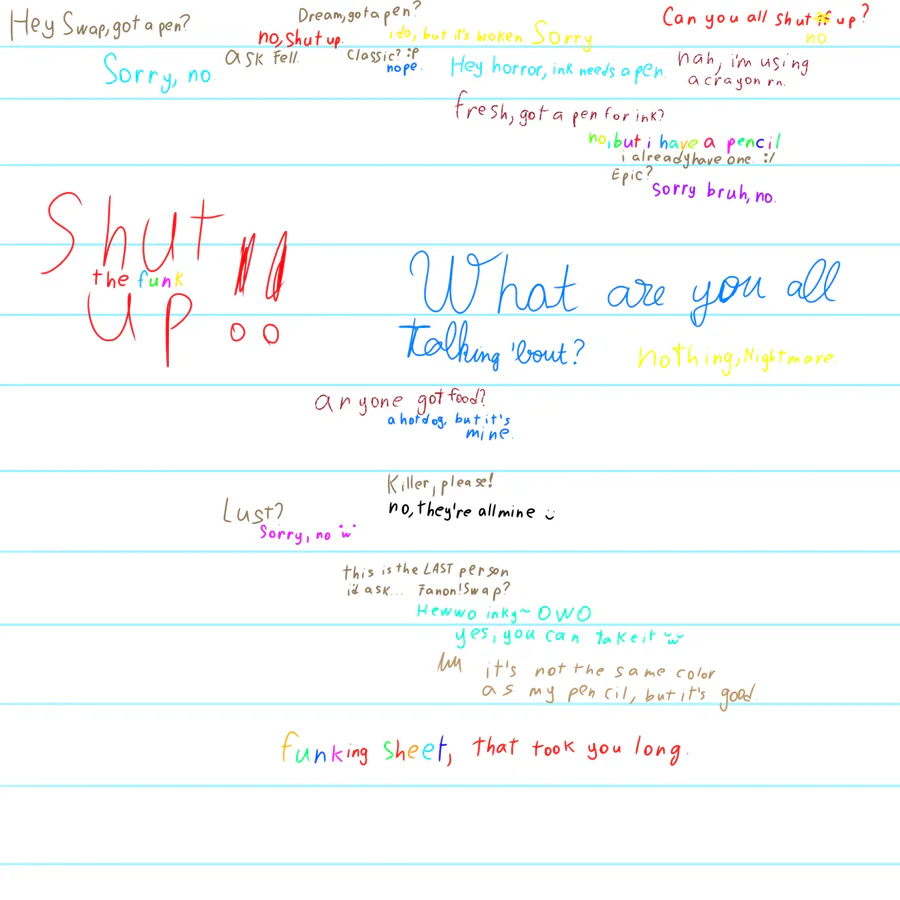 Hey Swap, got a pen?
Sorry, no.
ask Fell.
no, shut up.
Dream, got a pen?
i do, but it's broken. Sorry
Classic? :P
nope.
Hey horror, ink needs a pen.
Can you all shut up?
no
nah, i'm using
a crayon rn.
fresh, got a pen for ink?
no, but i have a pencil
i already have one :/
Epic?
Sorry bruh, no.
Shut !!
the funk
up
What are you all
talking 'bout?
nothing, Nightmare
anyone got food?
a hotdog, but it's
mine.
Killer, please!
no, they're all mine :)
Lust?
Sorry, no
this is the LAST person
i'd ask... Fanon!Swap?
Hewwo inky~ OWO
yes, you can take it
it's not the same color
as my pencil, but it's good.
funking sheet, that took you long.